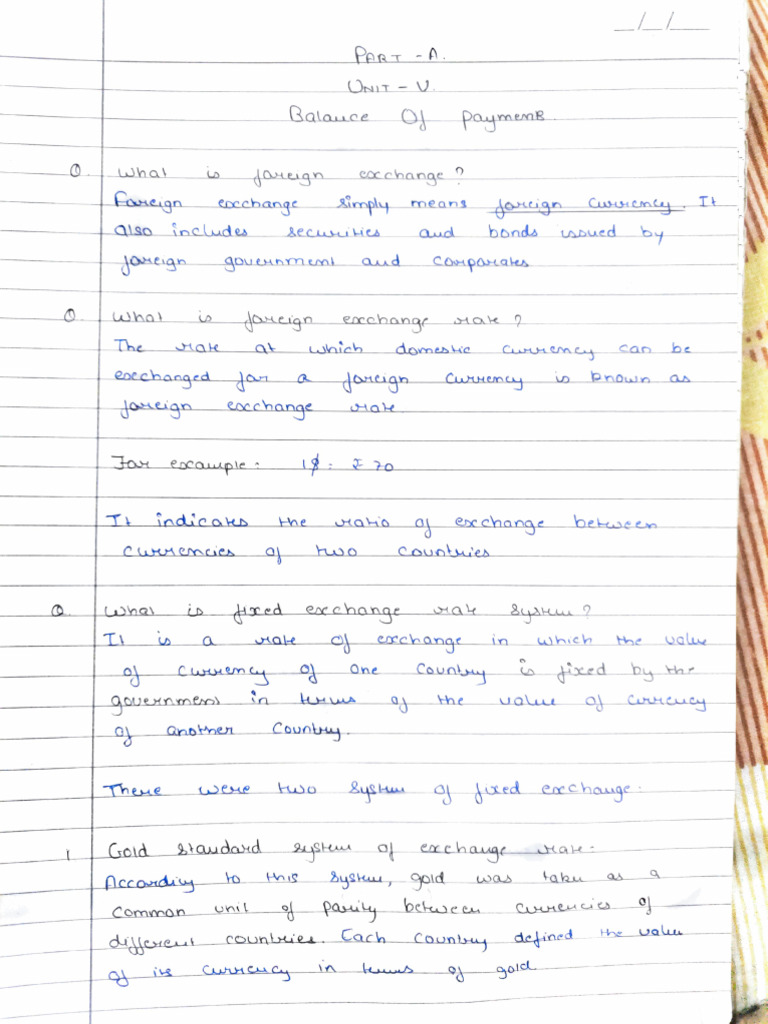 __/__/____
PART - A.
UNIT - V.
Balance Of Payments
Q. What is foreign exchange?
Foreign exchange simply means foreign currency. It
also includes securities and bonds issued by
foreign government and corporates
Q. What is foreign exchange rate?
The rate at which domestic currency can be
exchanged for a foreign currency is known as
foreign exchange rate
For example: 1$ : ₹ 70
It indicates the ratio of exchange between
currencies of two countries
Q. What is fixed exchange rate system?
It is a rate of exchange in which the value
of currency of one country is fixed by the
government in terms of the value of currency
of another country.
There were two system of fixed exchange:
1 Gold standard system of exchange rate:
According to this system, gold was taken as a
common unit of parity between currencies of
different countries. Each country defined the value
of its currency in terms of gold.